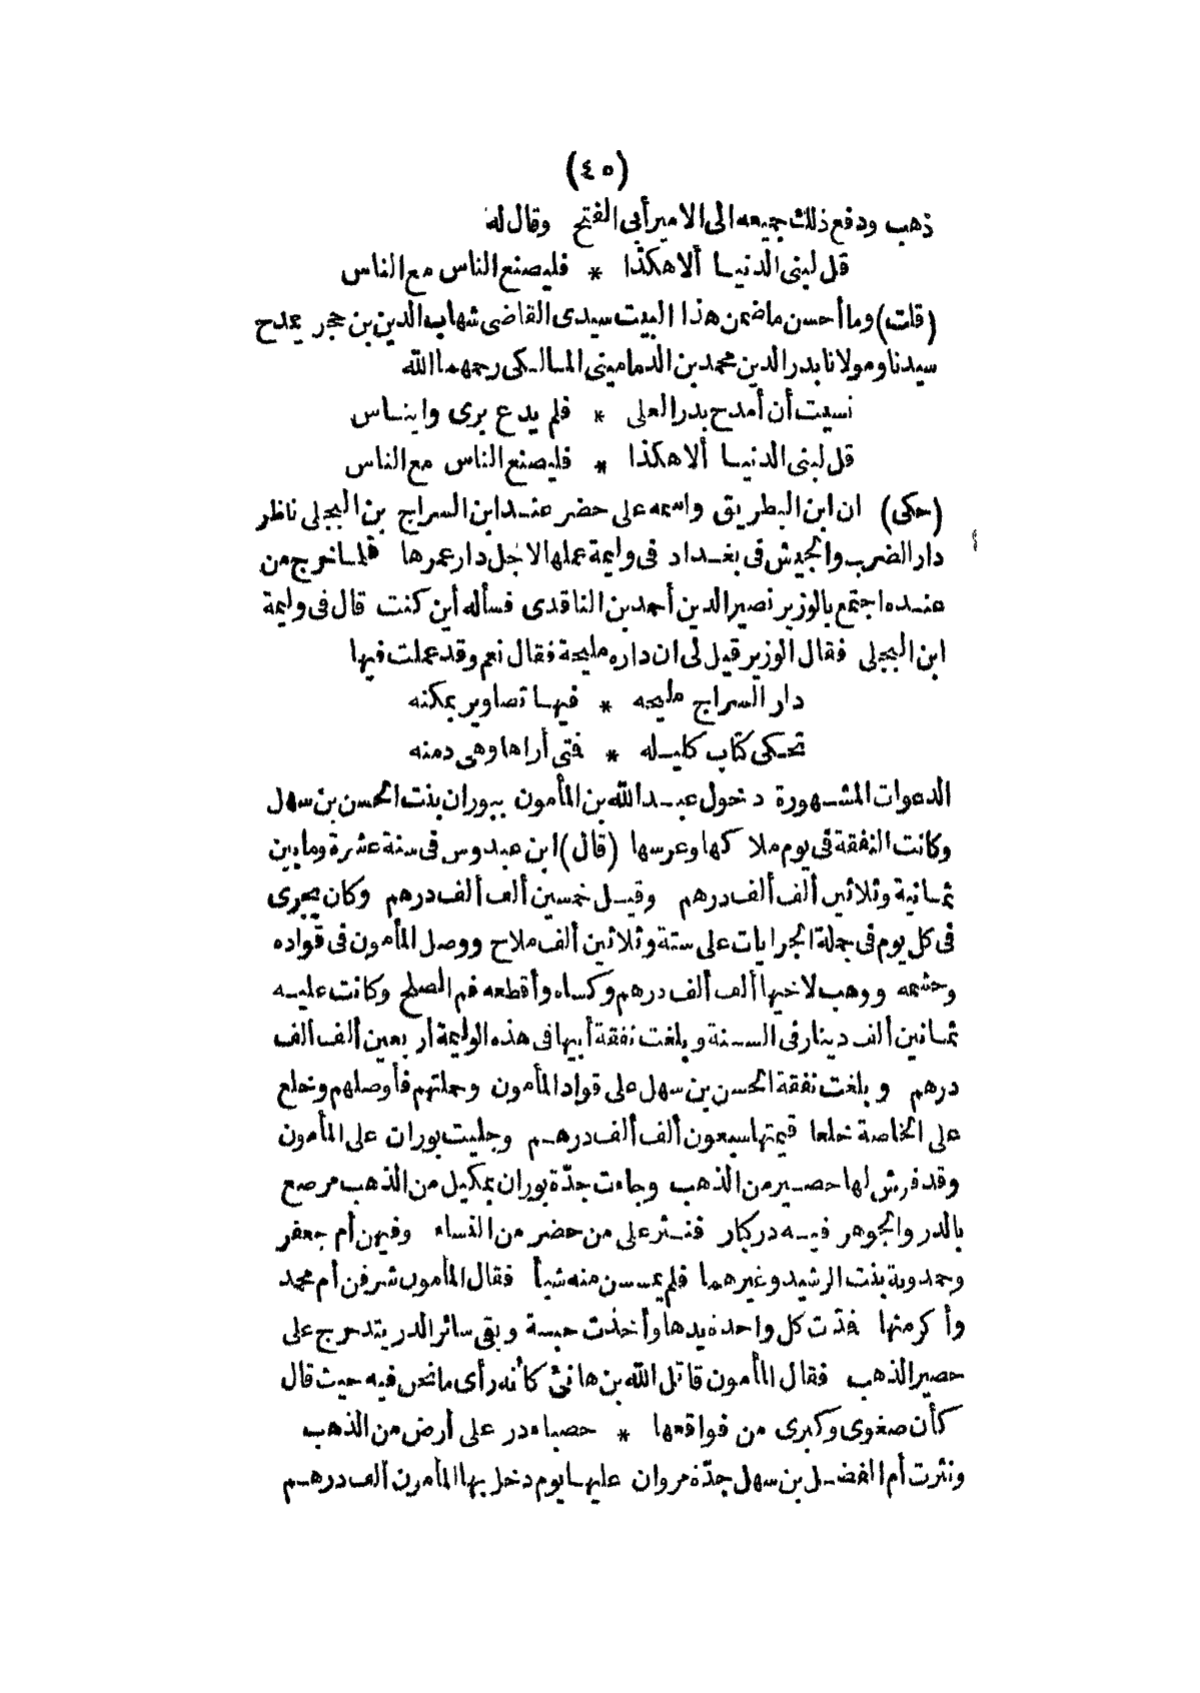 (٤٥)
ذهب ودفع ذلك جميعه الى الامير أبى الفتح وقال له
قل لبنى الدنيا ألا هكذا * فليصنع الناس مع الناس
(قلت) وما أحسن ما ضمن هذا البيت سيدى القاضى شهاب الدين بن حجر يمدح
سيدنا ومولانا بدر الدين محمد بن الدمامينى المالكى رحمهما الله
نسيت أن أمدح بدر العلى * فلم يدع برى وايناس
قل لبنى الدنيا ألا هكذا * فليصنع الناس مع الناس
(حكى) ان ابن البطريق واسمه على حضر عند ابن السراج بن البجلى ناظر
دار الضرب والجيش فى بغداد فى وليمة عملها لاجل دار عمرها فلما خرج من
عنده اجتمع بالوزير نصير الدين أحمد بن الناقدى فسأله أين كنت قال فى وليمة
ابن البجلى فقال الوزير قيل لى ان داره مليحة فقال نعم وقد عملت فيها
دار السراج مليحه * فيها تصاوير بمكنه
تحكى كتاب كليله * فتى أراها وهى دمنه
الدعوات المشهورة دخول عبد الله بن المأمون ببوران بنت الحسن بن سهل
وكانت النفقة فى يوم ملاكها وعرسها (قال) ابن عبدوس فى سنة عشرة ومابين
ثمانية وثلاثين ألف ألف درهم وقيل خمسين ألف ألف درهم وكان يجرى
فى كل يوم فى جملة الجرايات على ستة وثلاثين ألف ملاح ووصل المأمون فى قواده
وحشمه ووهب لاخيها ألف ألف درهم وكساه وأقطعه فم الصلح وكانت عليه
ثمانين ألف دينار فى السنة وبلغت نفقة أبيها فى هذه الوليمة أربعين ألف ألف
درهم وبلغت نفقة الحسن بن سهل على قواد المأمون وحملتهم فأوصلهم وخلع
على الخاصة خلعا قيمتها سبعون ألف ألف درهم وجليت بوران على المأمون
وقد فرش لها حصير من الذهب وجاءت جدّة بوران بمكيل من الذهب مرصع
بالدر والجوهر فيه در كبار فنثر على من حضر من النساء وفيهن أم جعفر
وحمدونة بنت الرشيد وغيرهما فلم يمسسن منه شيأ فقال المأمون شرفن أم محمد
وأكرمنها فمدّت كل واحدة يدها وأخذت حبسة وبقى سائر الدر يتدحرج على
حصير الذهب فقال المأمون قاتل الله بن هانئ كأنه رأى ما نحن فيه حيث قال
كأن صغرى وكبرى من فواقعها * حصباء در على أرض من الذهب
ونثرت أم الفضل بن سهل جدّة مروان عليها يوم دخل بها المأمون ألف درهم